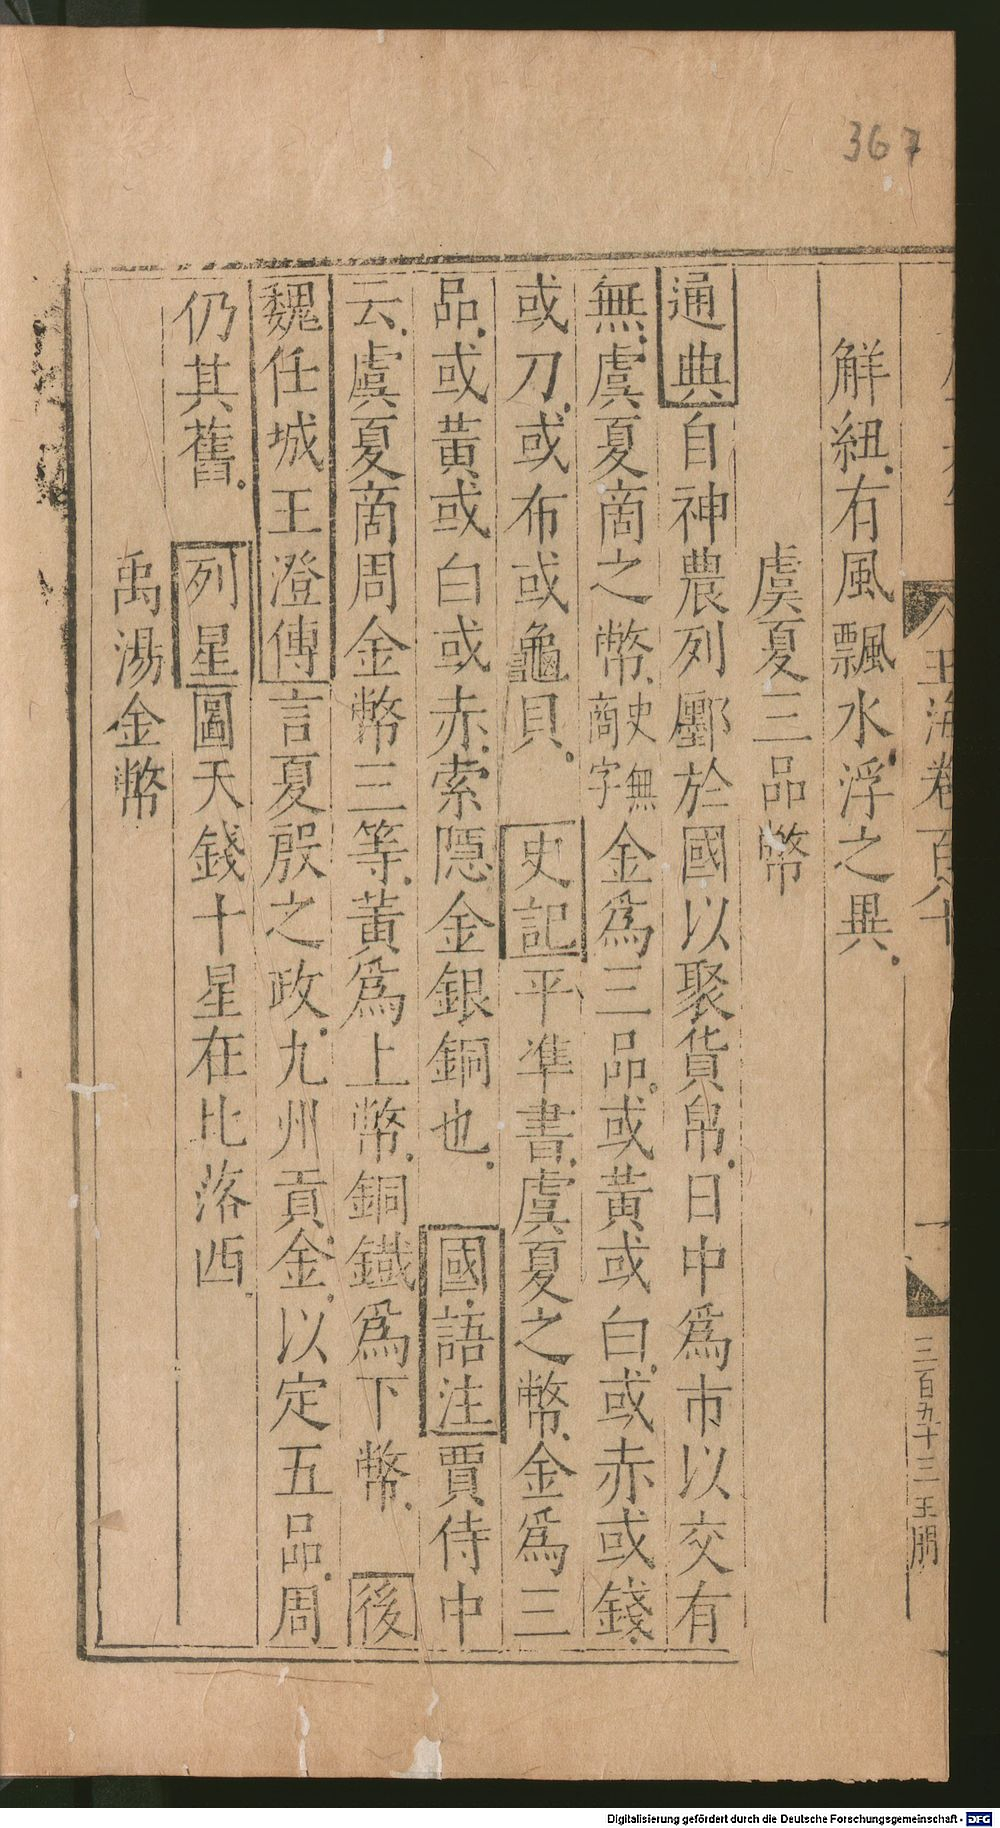 367
玉海卷百八十
一
三百九十三 王朋
解紐有風飄水浮之異
虞夏三品幣
通典自神農列廛於國以聚貨帛日中爲市以交有
無虞夏商之幣史無商字金爲三品或黃或白或赤或錢
或刀或布或龜貝 史記平準書虞夏之幣金爲三
品或黃或白或赤索隱金銀銅也 國語注賈侍中
云虞夏商周金幣三等黃爲上幣銅鐵爲下幣 後
魏任城王澄傳言夏殷之政九州貢金以定五品周
仍其舊 列星圖天錢十星在北落西
禹湯金幣
Digitalisierung gefördert durch die Deutsche Forschungsgemeinschaft - DFG